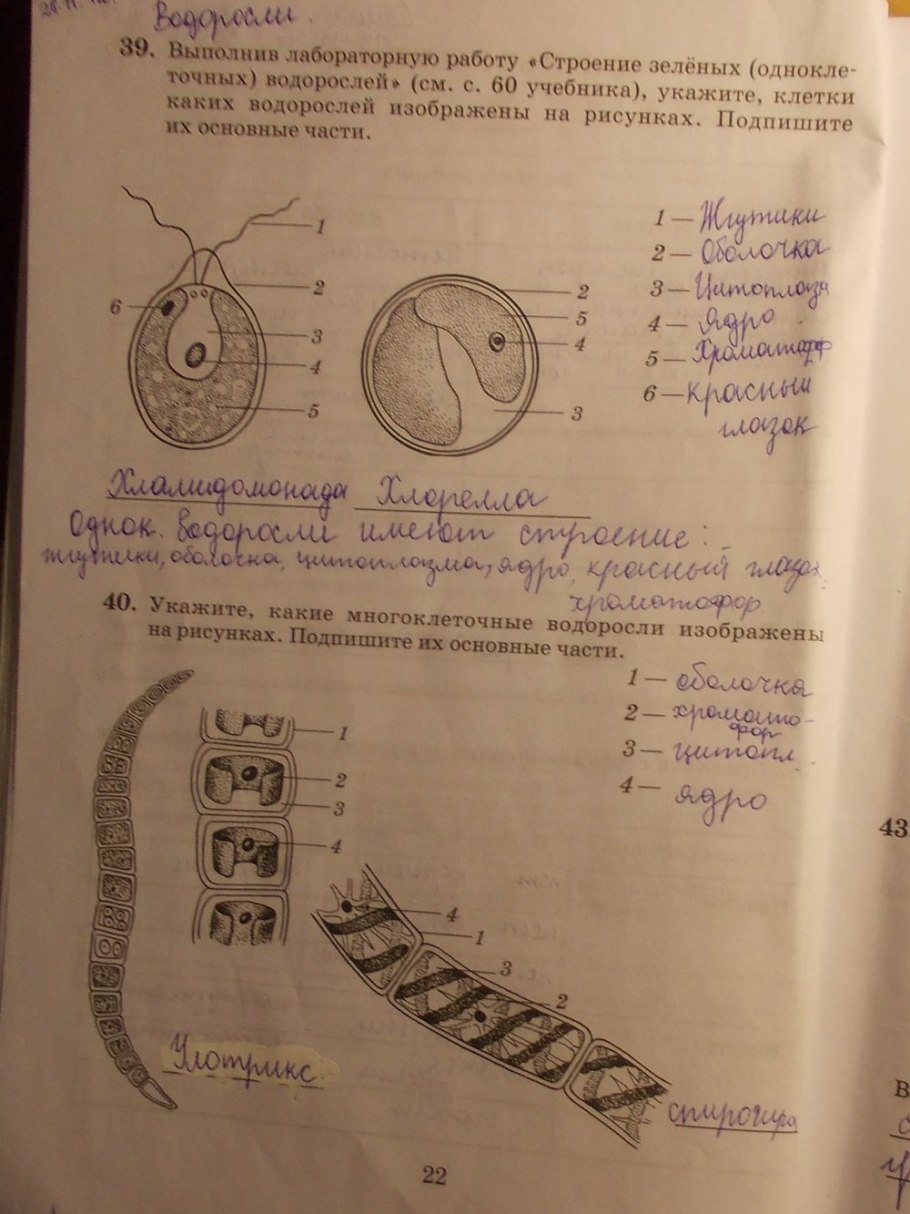 Водоросли.
39. Выполнив лабораторную работу «Строение зелёных (однокле-
точных) водорослей» (см. с. 60 учебника), укажите, клетки
каких водорослей изображены на рисунках. Подпишите
их основные части.
1
2
6
3
4
5
2
5
4
3
1 — Жгутики
2 — Оболочка
3 — Цитоплаза
4 — Ядро
5 — Хроматофф
6 — красный
глазок
Хламидомонада Хлорелла
Однок. водоросли имеют строение:
жгутики, оболочка, цитоплазма, ядро, красный глазок,
хроматофор
40. Укажите, какие многоклеточные водоросли изображены
на рисунках. Подпишите их основные части.
1 — оболочка
2 — хромато-
фор
3 — цитопл.
4 — ядро
1
2
3
4
4
1
3
2
Улотрикс
спирогира
22
43
В